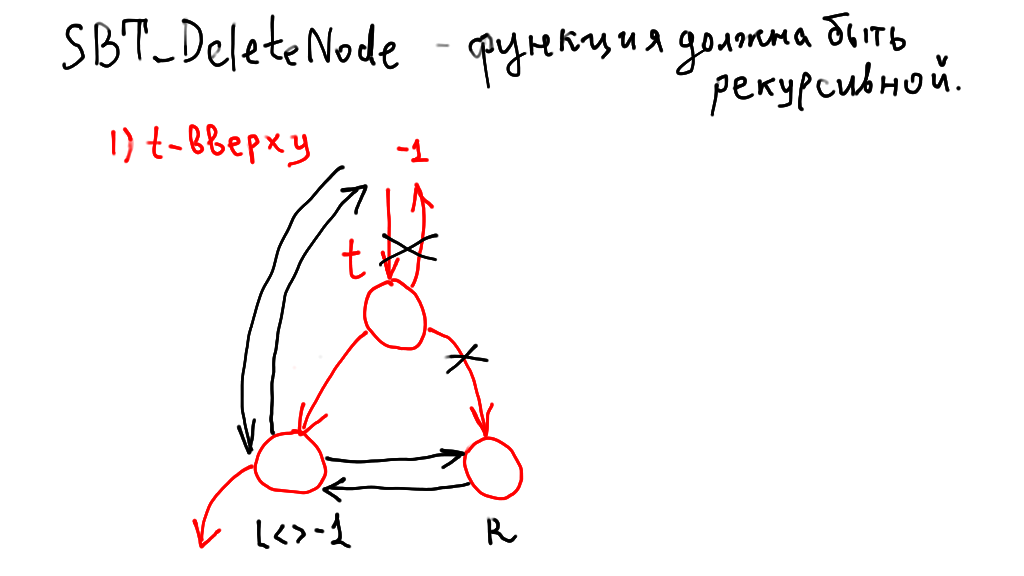 SBT_DeleteNode - функция должна быть
рекурсивной.
1) t-вверху
-1
t
L<>-1
R